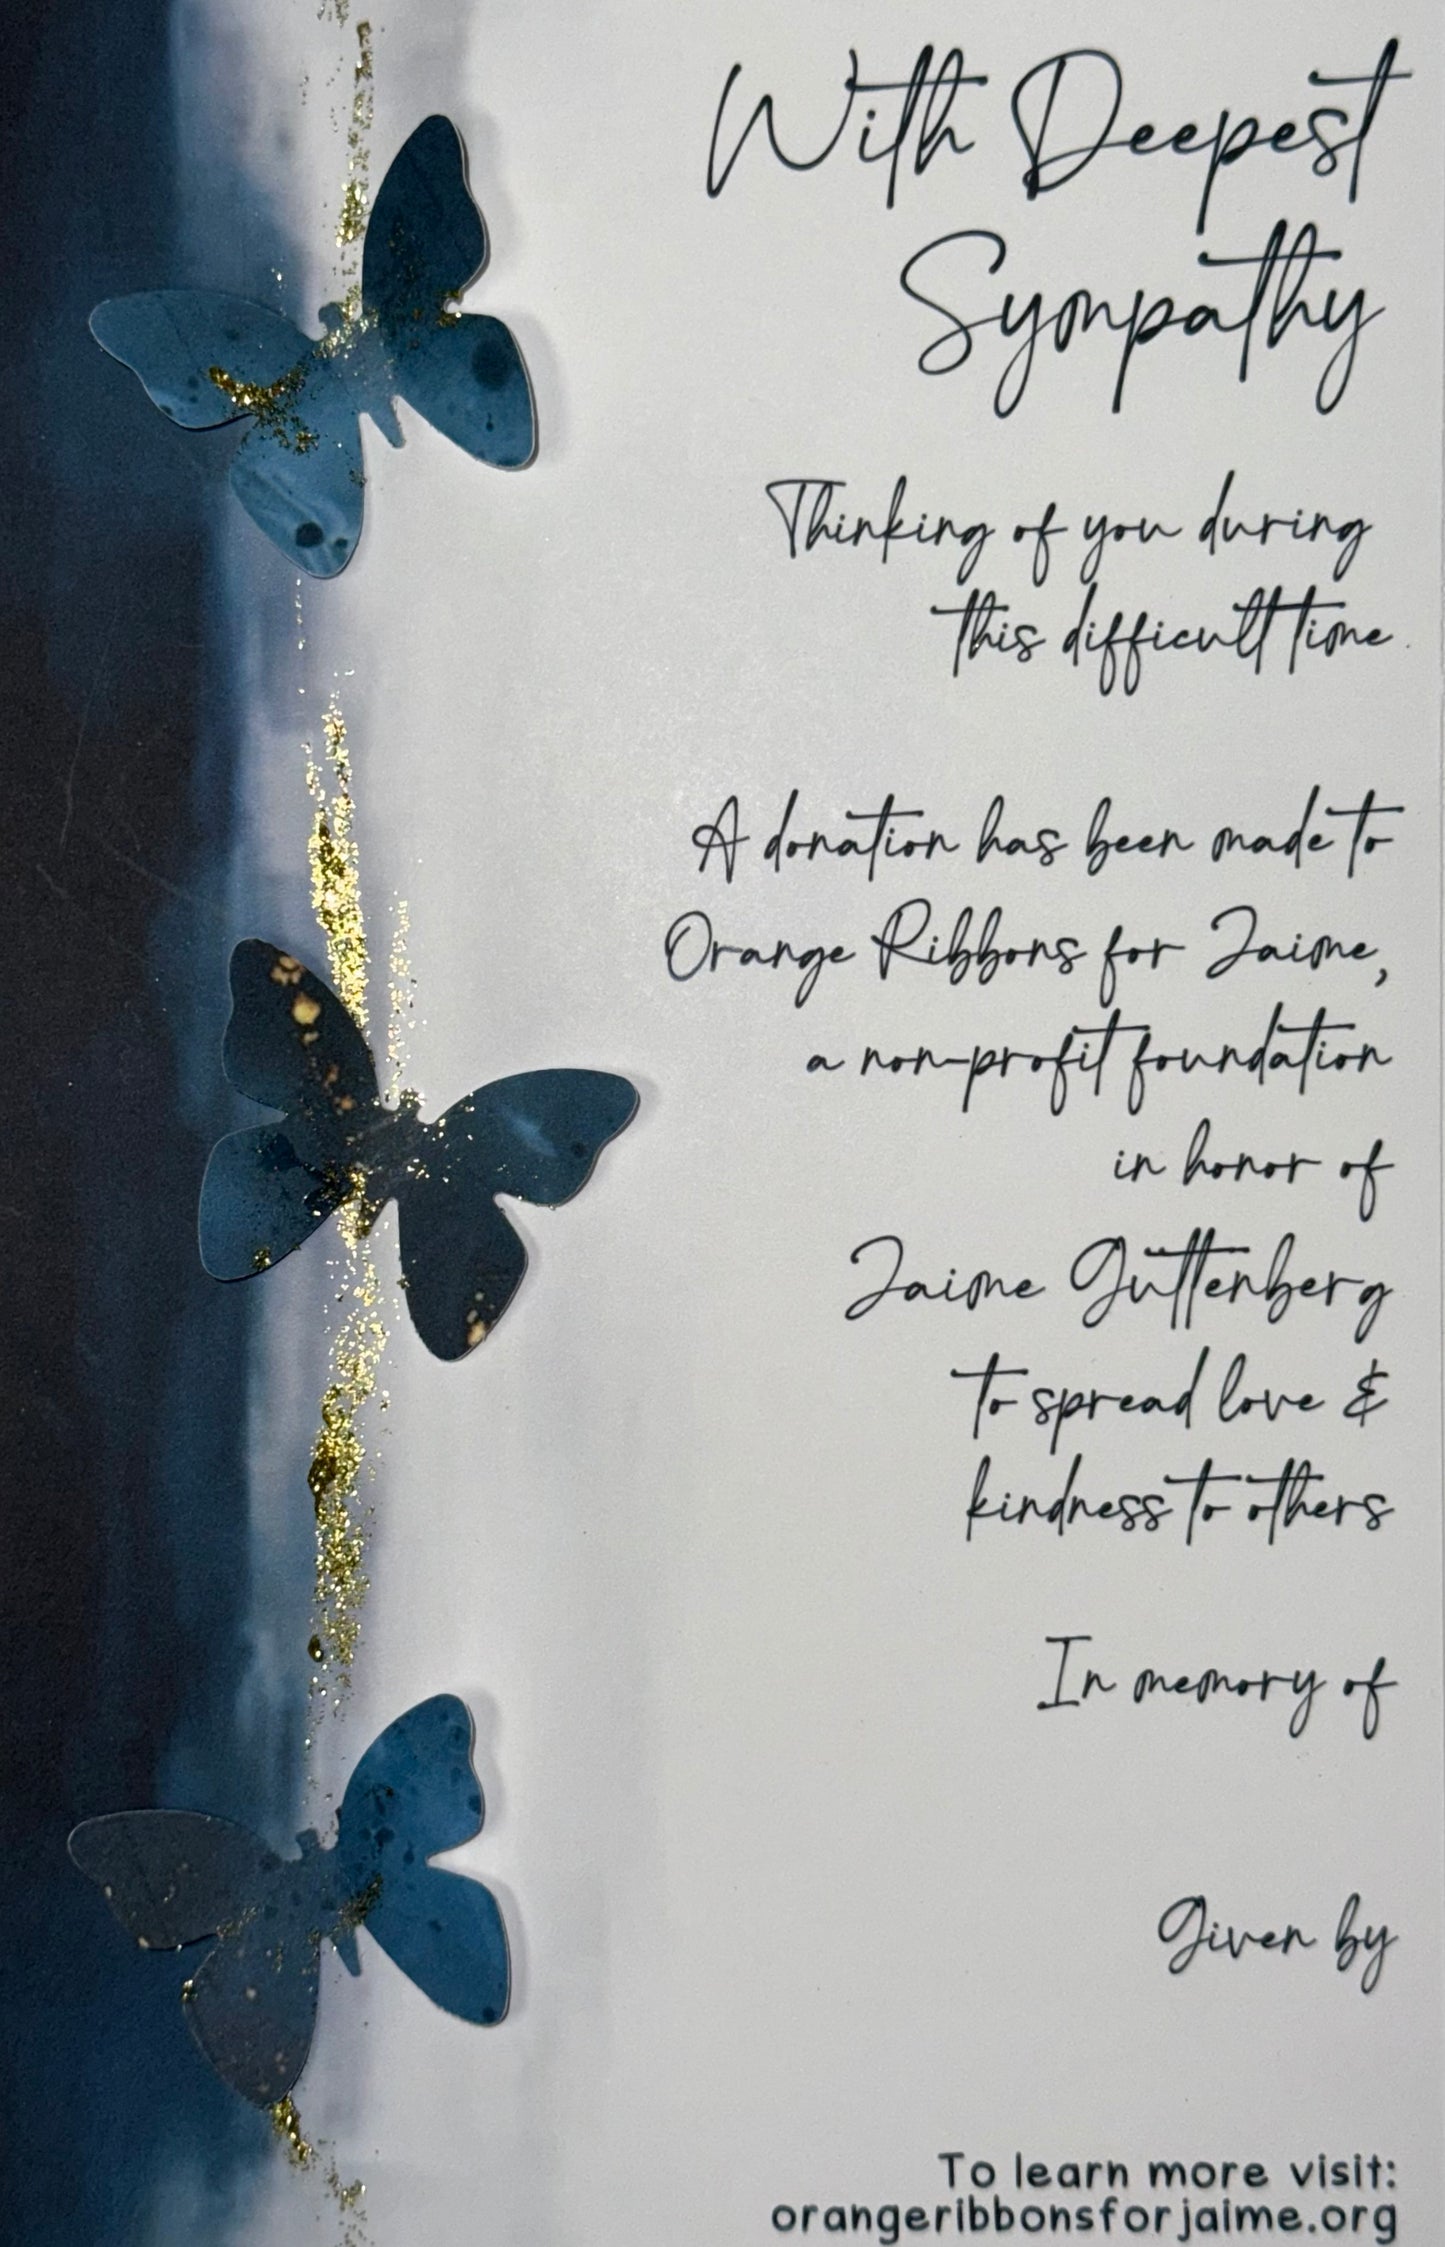 With Deepest
Sympathy
Thinking of you during
this difficult time.
A donation has been made to
Orange Ribbons for Jaime,
a non-profit foundation
in honor of
Jaime Guttenberg
to spread love &
kindness to others
In memory of
Given by
To learn more visit:
orangeribbonsforjaime.org